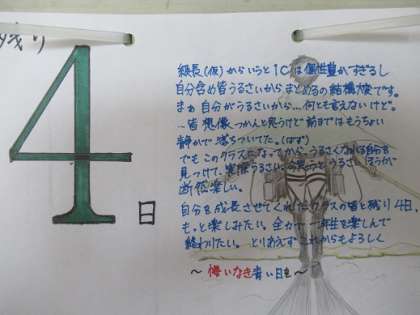 残り
4
日
級長(仮)からいうと1Cは個性豊かすぎるし
自分含め皆うるさいからまとめるの結構大変です。
まぁ自分がうるさいから…何とも言えないけど。
…皆想像つかんと思うけど前まではもうちょい
静かで落ちついてた。(はず)
でもこのクラスになってから、うるさくなれる自分を
見つけて、実際うるさいと思うと、うるさいほうが
断然楽しい。
自分を成長させてくれたクラスの皆と残り4日、
もっと楽しみたい。全力で一年生を楽しんで
終わりたい。とりあえずこれからもよろしく
〜悔いなき青い日を〜